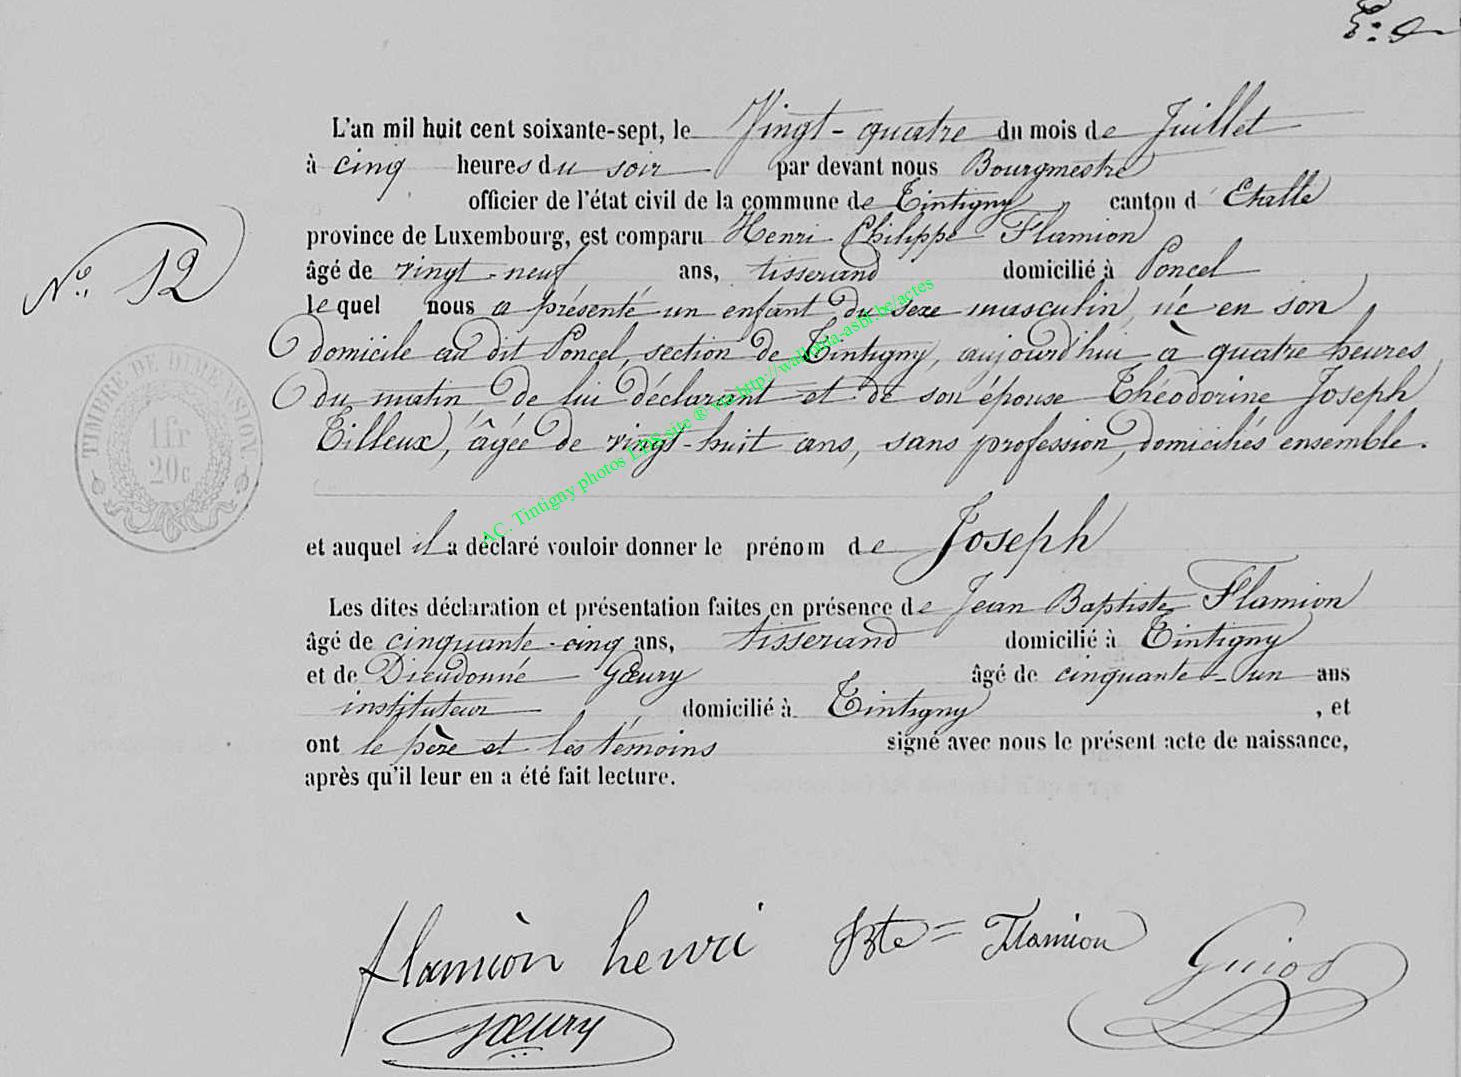 L'an mil huit cent soixante-sept, le Vingt-quatre du mois de Juillet
à cinq heures du soir par devant nous Bourgmestre
officier de l'état civil de la commune de Tintigny canton d' Etalle
province de Luxembourg, est comparu Henri Philippe Flamion
âgé de vingt-neuf ans, tisserand domicilié à Poncel
No. 12
le quel nous a présenté un enfant du sexe masculin, né en son
domicile au dit Poncel, section de Tintigny, aujourd'hui à quatre heures
du matin de lui déclarant et de son épouse Théodorine Joseph
Tilleux, âgée de vingt-huit ans, sans profession, domiciliés ensemble.
TIMBRE DE DIMENSION
1fr
20c
AC. Tintigny photos LPS site ® via http://wallonia-asbl.be/actes
et auquel il a déclaré vouloir donner le prénom de Joseph
Les dites déclaration et présentation faites en présence de Jean Baptiste Flamion
âgé de cinquante-cinq ans, tisserand domicilié à Tintigny
et de Dieudonné Gœury âgé de cinquante-un ans
instituteur domicilié à Tintigny, et
ont le père et les témoins signé avec nous le présent acte de naissance,
après qu'il leur en a été fait lecture.
flamion henri Bte = Flamion
Gœury